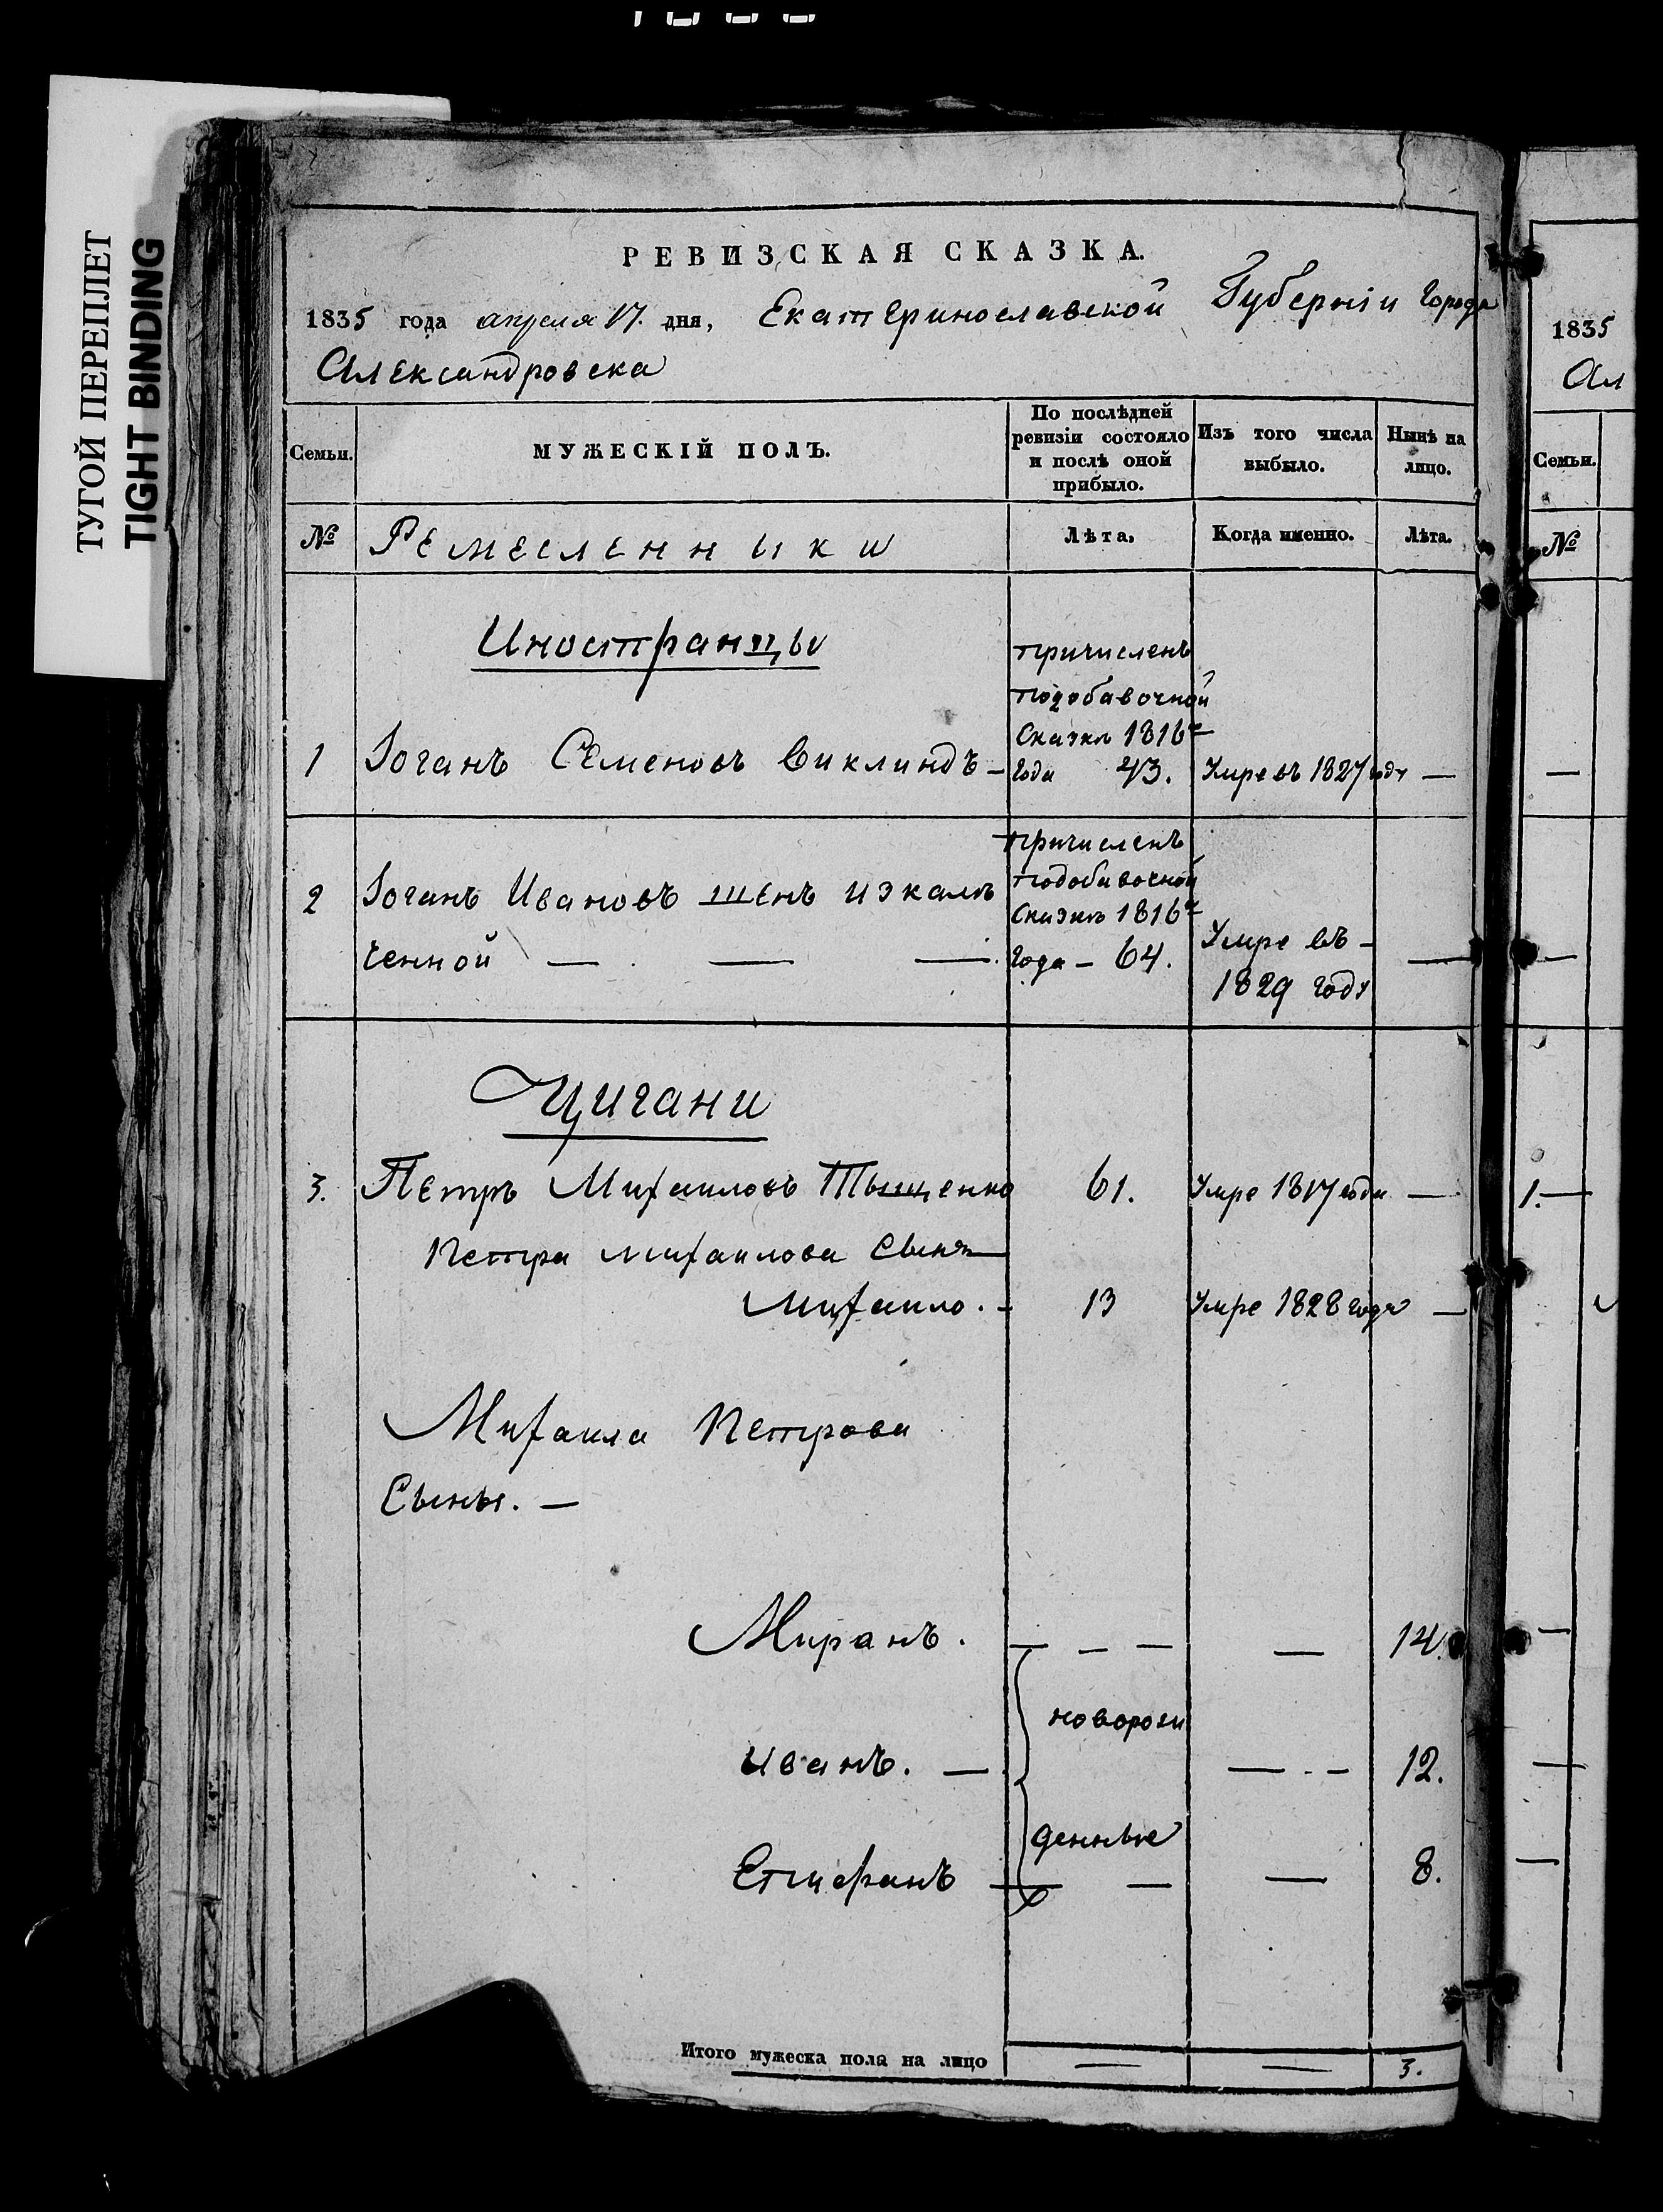 ТУГОЙ ПЕРЕПЛЕТ
TIGHT BINDING
РЕВИЗСКАЯ СКАЗКА.
1835 года апреля 17. дня, Екатеринославской Губерніи Города
Александровска
Семьи.
МУЖЕСКІЙ ПОЛЪ.
По послѣдней ревизіи состояло и послѣ оной прибыло.
Изъ того числа выбыло.
Нынѣ на лицо.
№
Ремесленники
Лѣта.
Когда именно.
Лѣта.
Иностранцы
причисленъ
подобавочной
Сказки 1816г
1 Іоганъ Семеновъ Виклиндъ – Года 43. Умре въ 1827 годѵ —
причисленъ
подобавочной
2 Іоганъ Ивановъ шенъ изкалю Сказки 1816г
ченной — — — Года – 64. Умре въ – —
1829 годѵ
Цигани
3. Петръ Михаиловъ Тыщенко 61. Умре 1817 года —
Петра Михаилова Сынъ
Михаило. – 13 Умре 1828 года —
Михаила Петрова
Сынья. —
Миранъ. — – — — 14.
новорож
Иванъ. — — - – 12.
денные
Епифанъ — — — 8.
Итого мужеска пола на лицо — — 3.
1835
Ал
Семьи.
№
—
—
1. —
—
—
—